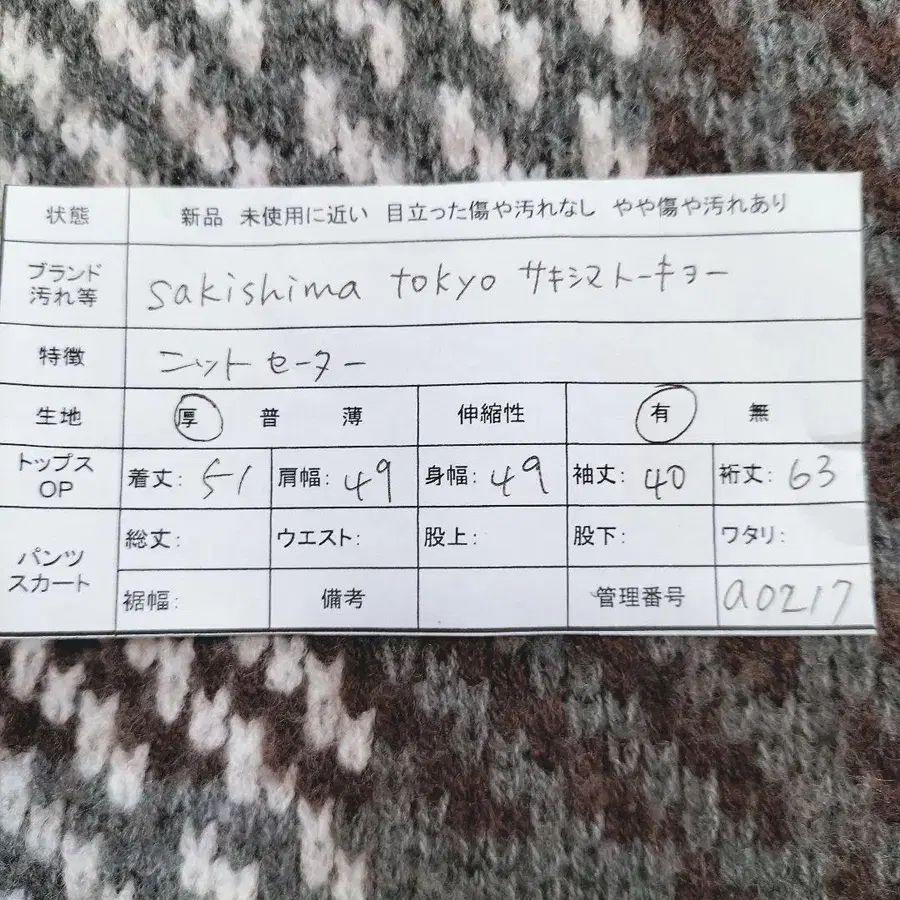 状態 新品 未使用に近い 目立った傷や汚れなし やや傷や汚れあり
ブランド
汚れ等
sakishima tokyo サキシマトーキョー
特徴 ニットセーター
生地 厚 普 薄 伸縮性 有 無
トップス
OP
着丈: 51 肩幅: 49 身幅: 49 袖丈: 40 裄丈: 63
パンツ
スカート
総丈: ウエスト: 股上: 股下: ワタリ:
裾幅: 備考 管理番号 a0217